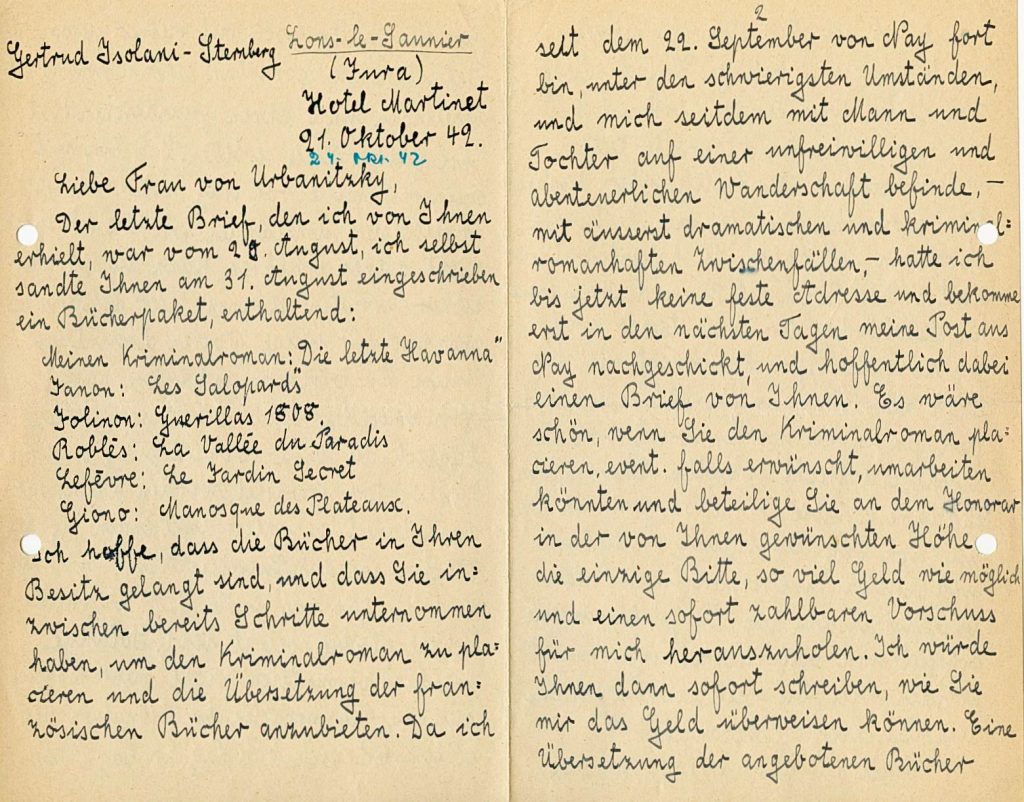 Gertrud Isolani-Sternberg
Lons-le-Saunier
(Jura)
Hotel Martinet
21. Oktober 42.
24. Okt. 42
Liebe Frau von Urbanitzky,
Der letzte Brief, den ich von Ihnen
erhielt, war vom 28. August, ich selbst
sandte Ihnen am 31. August eingeschrieben
ein Bücherpaket, enthaltend:
Meinen Kriminalroman: "Die letzte Havanna"
Fanon: Les Galopards"
Folinon: Guerillas 1808.
Roblès: La Vallée du Paradis
Lefèvre: Le Jardin Secret
Giono: Manosque des Plateaux.
Ich hoffe, dass die Bücher in Ihren
Besitz gelangt sind, und dass Sie in=
zwischen bereits Schritte unternommen
haben, um den Kriminalroman zu pla=
cieren und die Übersetzung der fran=
zösischen Bücher anzubieten. Da ich
2
seit dem 22. September von Nay fort
bin, unter den schwierigsten Umständen,
und mich seitdem mit Mann und
Tochter auf einer unfreiwilligen und
abenteuerlichen Wanderschaft befinde, –
mit äusserst dramatischen und kriminal=
romanhaften Zwischenfällen, – hatte ich
bis jetzt keine feste Adresse und bekomme
erst in den nächsten Tagen meine Post aus
Nay nachgeschickt, und hoffentlich dabei
einen Brief von Ihnen. Es wäre
schön, wenn Sie den Kriminalroman pla=
cieren, event. falls erwünscht, umarbeiten
könnten und beteilige Sie an dem Honorar
in der von Ihnen gewünschten Höhe
die einzige Bitte, so viel Geld wie möglich
und einen sofort zahlbaren Vorschuss
für mich herauszuholen. Ich würde
Ihnen dann sofort schreiben, wie Sie
mir das Geld überweisen können. Eine
Übersetzung der angebotenen Bücher